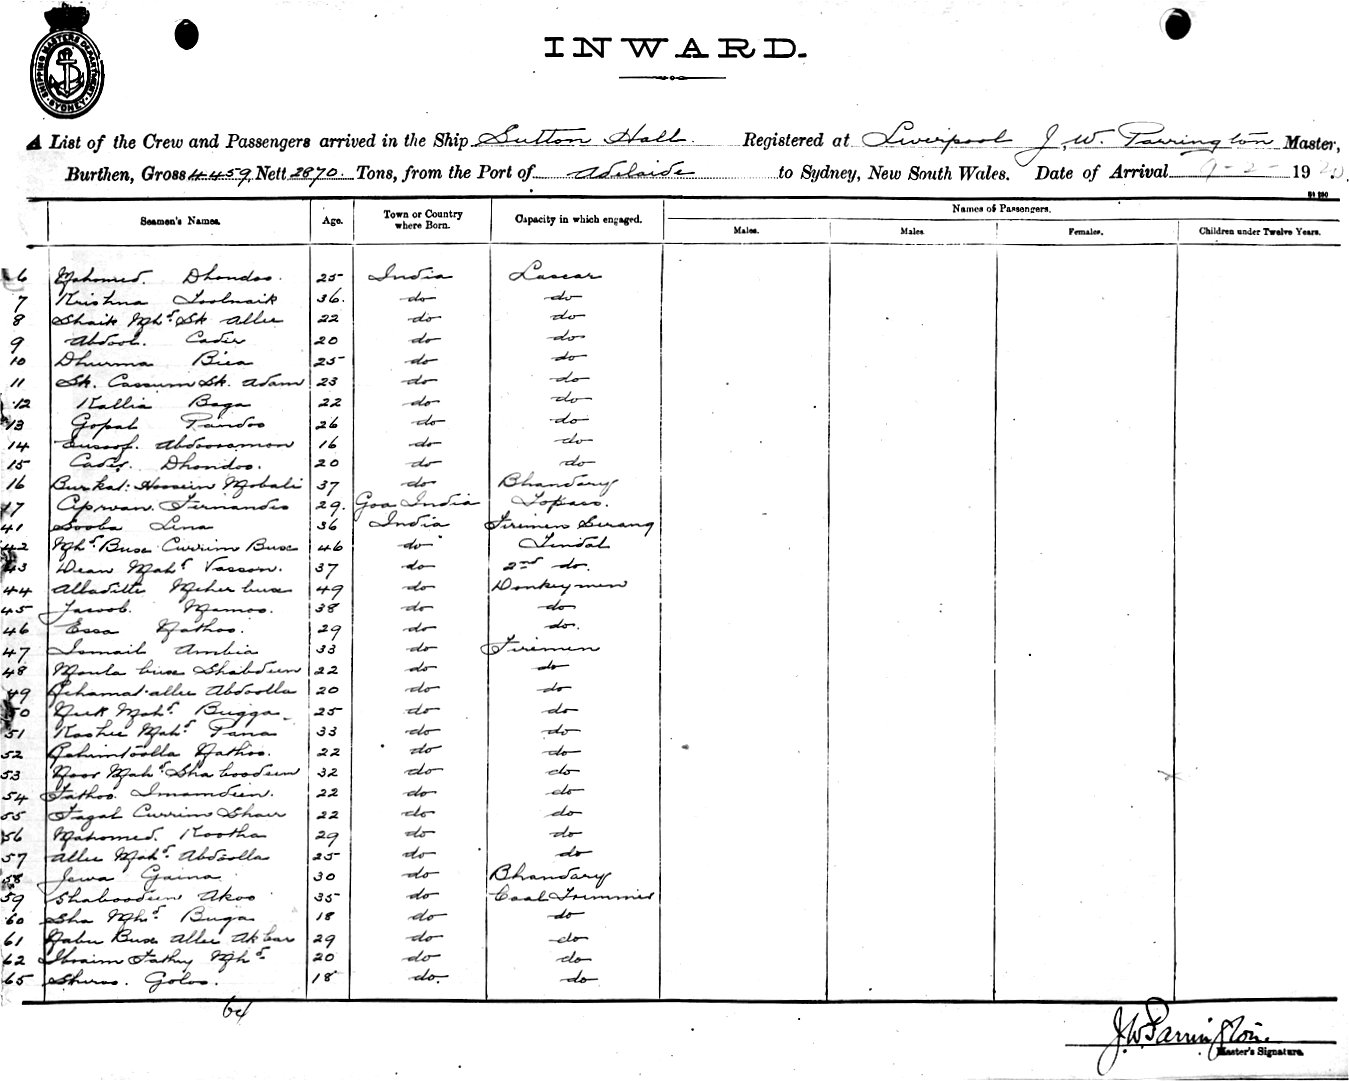 SHIPPING MASTERS DEPARTMENT SYDNEY
INWARD.
A List of the Crew and Passengers arrived in the Ship Sutton Hall. Registered at Liverpool J. W. Parrington Master,
Burthen, Gross 4459, Nett 2870. Tons, from the Port of Adelaide to Sydney, New South Wales. Date of Arrival 9-2- 1920.
Seamen's Names. Age. Town or Country where Born. Capacity in which engaged. Names of Passengers.
Males. Males. Females. Children under Twelve Years.
6 Mahomed. Dhondoo. 25 India Lascar
7 Krishna Loolnaik 36. do do
8 Shaik Mhd. Sk Allee 22 do do
9 Abdool. Cader 20 do do
10 Dhurma Bica 25 do do
11 Sk. Cassum Sk. Adam 23 do do
12 Kallia Baga 22 do do
13 Gopal Pandoo 26 do do
14 Eusoof. Abdooramon 16 do do
15 Cader. Dhondoo. 20 do do
16 Burkat: Hossein Mobali 37 do Bhandary
17 Fernandes 29. Goa India Topass.
41 Sooba Lina 36 India Firemen Serang
42 Mhd. Buse Currim Buse 46 do Tindal
43 Dean Mahd. Vasson. 37 do 2nd do.
44 Alladitte Meher buse 49 do Donkeymen
45 Jacoob. Mamoo. 38 do do
46 Essa Nathoo. 29 do do.
47 Ismail Ambia 33 do Firemen
48 Moula buse Shabdeen 22 do do
49 Rehamat-allee Abdoolla 20 do do
50 Neek Mahd. Bugga 25 do do
51 Kashee Mahd. Pana 33 do do
52 Rahimtoolla Nathoo. 22 do do
53 Noor Mahd. Sha boodeen 32 do do
54 Fathoo. Imamdeen. 22 do do
55 Fazal Currim Shair 22 do do
56 Mahomed. Kootha 29 do do
57 Allee Mahd. Abdoolla 25 do do
58 Jewa Gaina 30 do Bhandary
59 Shaboodeen Akoo 35 do Coal Trimmer
60 Sha Mhd. Buga 18 do do
61 Nabu Buse Allee Akbar 29 do do
62 Ibraim Fathey Mhd. 20 do do
65 Sheroo. Goloo. 18 do. do
64
J. W. Parrington.
Master's Signature.